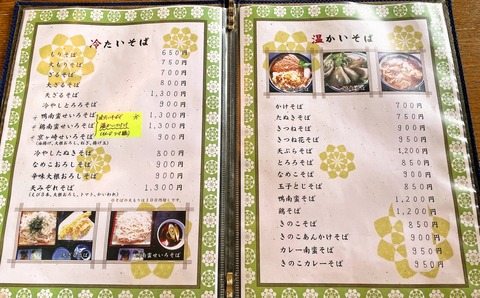 冷たいそば
もりそば 650円
大もりそば 750円
ざるそば 700円
大ざるそば 800円
天ざるそば 1,300円
冷やしとろろそば 900円
鴨南蛮せいろそば 1,300円
鶏南蛮せいろそば 1,300円
京ヶ崎せいろそば 900円
冷やしたぬきそば 800円
なめこおろしそば 900円
辛味大根おろしそば 900円
天みぞれそば 1,300円
(えび3本、大根おろし、トマト、かいわれ)
南蛮せいろそば
温かいそば
かけそば 700円
たぬきそば 750円
きつねそば 900円
きつね花そば 950円
天ぷらそば 1,200円
とろろそば 850円
なめこそば 900円
玉子とじそば 850円
鴨南蛮そば 1,200円
鶏そば 1,200円
きのこそば 850円
きのこあんかけそば 900円
カレー南蛮そば 850円
きのこカレーそば 950円